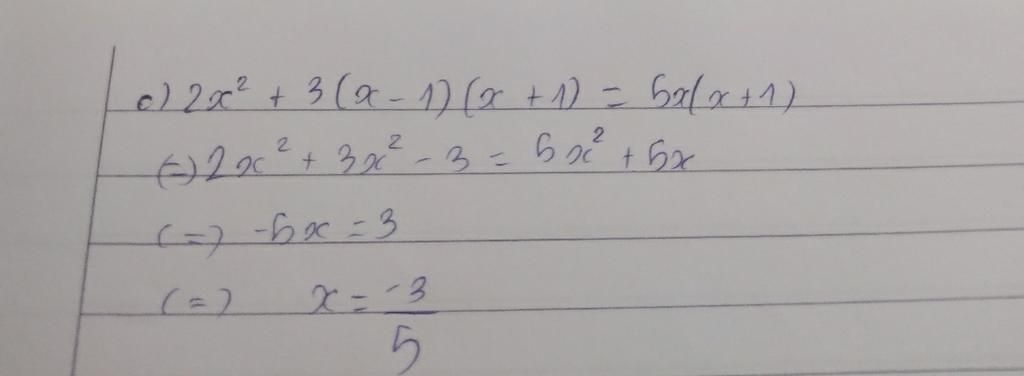 c) 2x² + 3(x - 1)(x + 1) = 5x(x + 1)
(=) 2x² + 3x² - 3 = 5x² + 5x
(=) -5x = 3
(=) x = -3/5